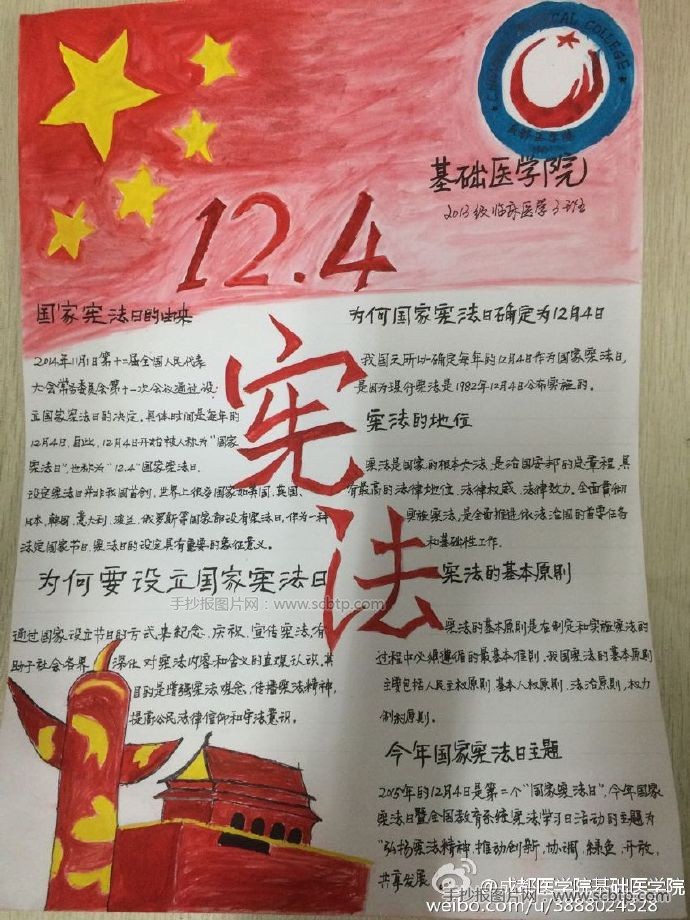 CHENGDU MEDICAL COLLEGE
成都医学院
基础医学院
2013级临床医学3班
12.4
宪法
国家宪法日的由来
2014年11月1日第十二届全国人民代表
大会常务委员会第十一次会议通过设
立国家宪法日的决定，具体时间是每年的
12月4日。自此，12月4日开始被人称为“国家
宪法日”，也称为“12.4”国家宪法日。
设定宪法日并非我国首创，世界上很多国家如美国、英国、
日本、韩国、意大利、波兰、俄罗斯等国家都设有宪法日，作为一种
法定国家节日，宪法日的设定具有重要的象征意义。
为何要设立国家宪法日
通过国家设立节日的方式来纪念、庆祝、宣传宪法，有
助于社会各界 深化对宪法内容和含义的直观认识，其
目的是增强宪法观念，传播宪法精神，
提高公民法律信仰和守法意识。
为何国家宪法日确定为12月4日
我国之所以确定每年的12月4日作为国家宪法日，
是因为现行宪法是1982年12月4日公布实施的。
宪法的地位
宪法是国家的根本大法，是治国安邦的总章程，具
有最高的法律地位、法律权威、法律效力。全面贯彻
实施宪法，是全面推进依法治国的首要任务
和基础性工作。
宪法的基本原则
宪法的基本原则是在制定和实施宪法的
过程中必须遵循的最基本准则，我国宪法的基本原则
主要包括人民主权原则、基本人权原则、法治原则、权力
制约原则。
今年国家宪法日主题
2015年的12月4日是第二个“国家宪法日”，今年国家
宪法日暨全国教育系统宪法学习日活动的主题为
“弘扬宪法精神，推动创新、协调、绿色、开放、
共享发展
手抄报图片网：www.scbtp.com
@成都医学院基础医学院
手抄报图片网：www.scbtp.com
weibo.com/u/3888024328